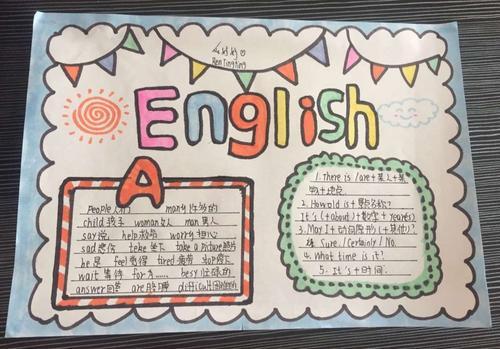 Ren Ting ting
English
A
People 人们 many 许多的
child 孩子 woman 女人 man 男人
say 说 help 救命 worry 担心
sad 悲伤 take 拿下 take a Picture 照片
be 是 feel 觉得 tired 疲劳 stop 停下
wait 等待 for 为…… besy 忙碌的
answer 回答 are difficult
1. There is /are+某人+某
物+地点
2. How old is+要问名称?
It's (+about)+数字+years)
3. May I+动词原形(+其他)?
Sure. /Certainly / No.
4. What time is it?
5. It's+时间.